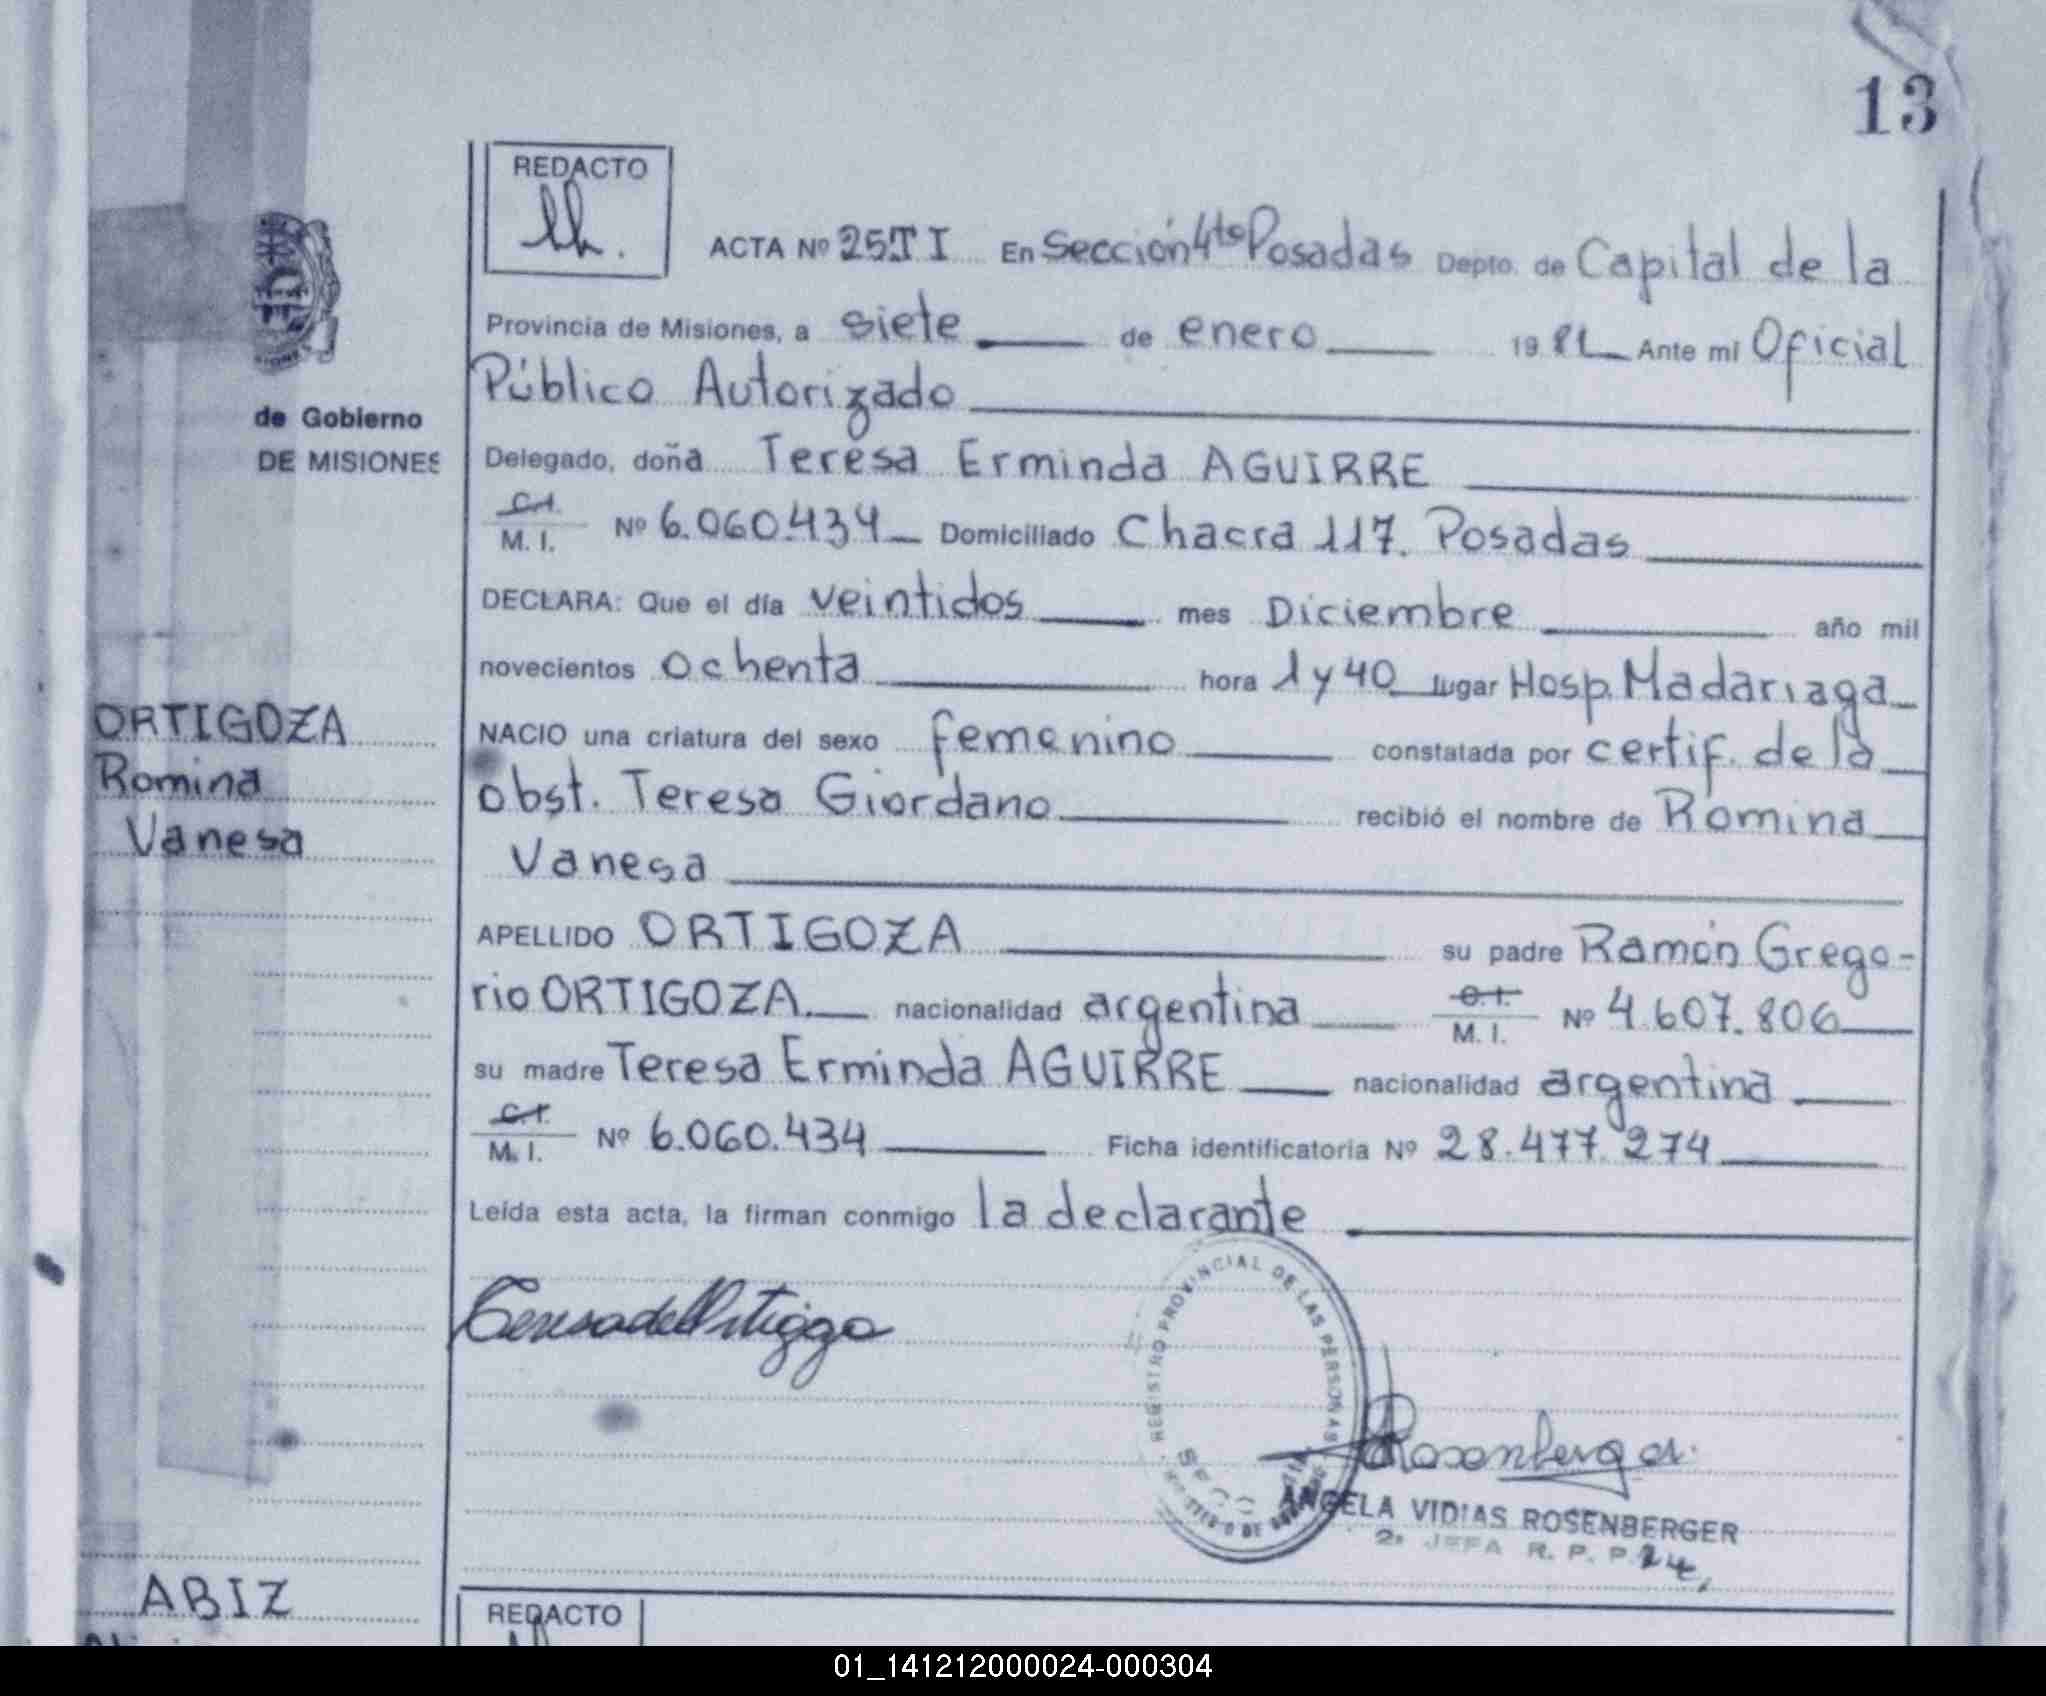 13
REDACTO
ACTA Nº 25 T I En Sección 4ta Posadas Depto. de Capital de la
Provincia de Misiones, a siete de enero 1981 Ante mi Oficial
Público Autorizado
de Gobierno
DE MISIONES
Delegado, doña Teresa Erminda AGUIRRE
C.I.
M. I. Nº 6.060.434 Domiciliado Chacra 117. Posadas
DECLARA: Que el día veintidos mes Diciembre año mil
novecientos ochenta hora 1 y 40 lugar Hosp. Madariaga
ORTIGOZA
Romina
Vanesa
NACIO una criatura del sexo femenino constatada por certif. de la
obst. Teresa Giordano recibió el nombre de Romina
Vanesa
APELLIDO ORTIGOZA su padre Ramón Grego-
rio ORTIGOZA. nacionalidad argentina C.I. M. I. Nº 4.607.806
su madre Teresa Erminda AGUIRRE nacionalidad argentina
C.I.
M. I. Nº 6.060.434 Ficha identificatoria Nº 28.477.274
Leída esta acta, la firman conmigo la declarante
REGISTRO PROVINCIAL DE LAS PERSONAS
Rosenberger
ANGELA VIDIAS ROSENBERGER
JEFA R. P. P.
ABIZ
REDACTO
01_141212000024-000304